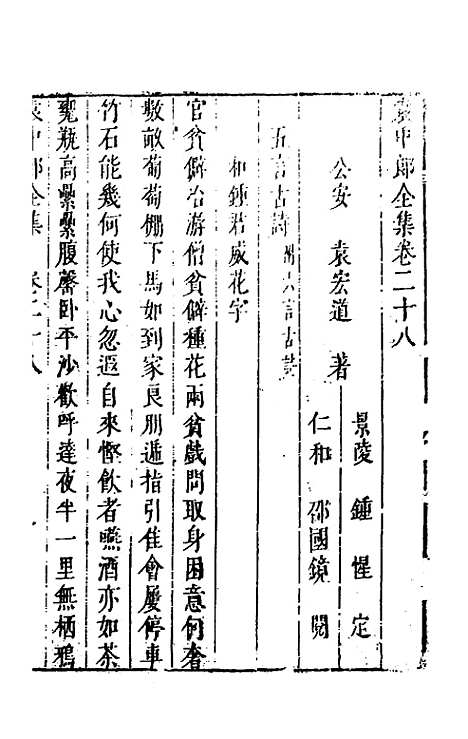 袁中郎全集卷二十八
景陵 鍾惺 定
公安 袁宏道 著
仁和 邵國鏡 閱
五言古詩 附六言古詩
和鍾君威花字
官貧僻冶游僧貧僻種花兩貧戲問取身困意何奢
數畝葡萄棚下馬如到家良朋遞指引佳會屢停車
竹石能幾何使我心忽遐自來慳飲者嚥酒亦如茶
甕瓶高纍纍腹罄臥平沙歡呼達夜半一里無栖鴉
袁中郎全集 卷二十八